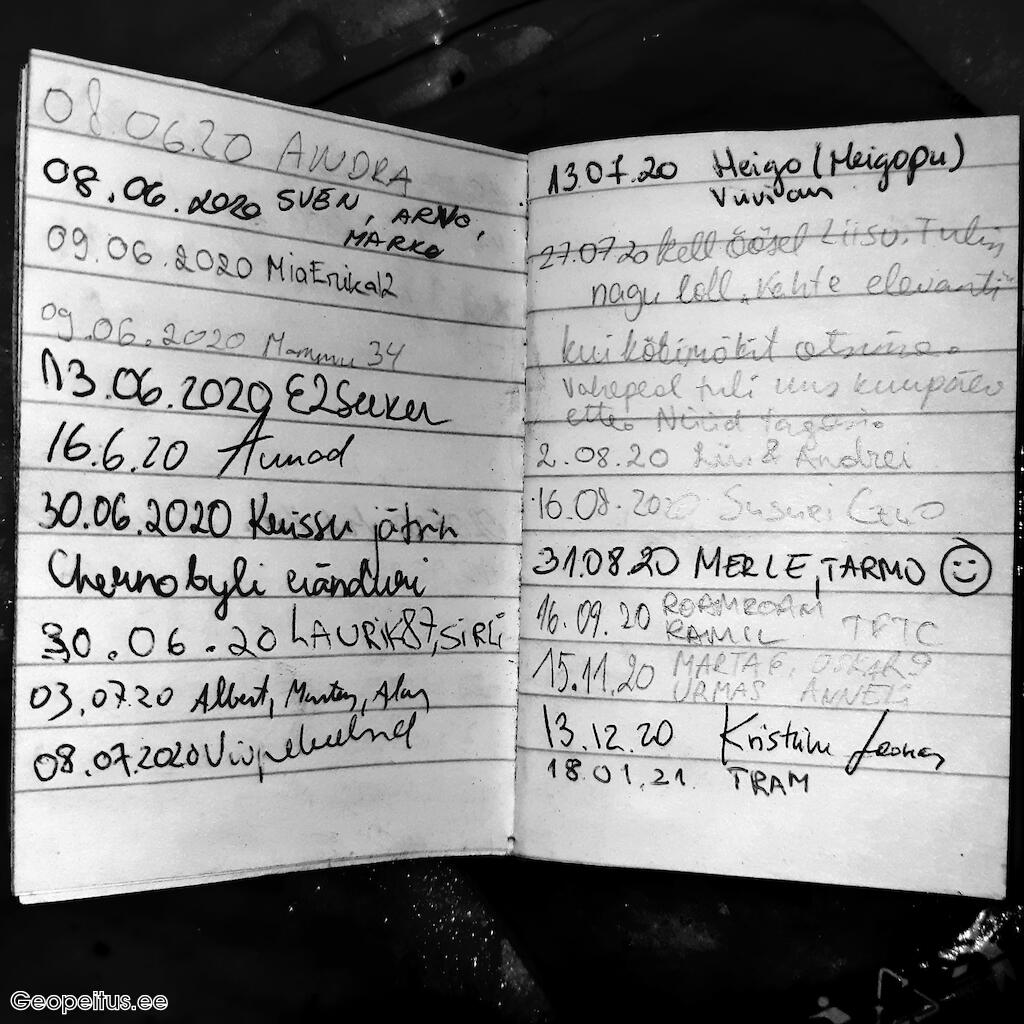 08.06.20 ANDRA
08.06.2020 SVEN, ARNO,
MARKO
09.06.2020 MiaErika12
09.06.2020 Mammu 34
13.06.2020 E2Seeker
16.6.20 Aunad
30.06.2020 Kuissu jätsin
Chernobyli ränduri
30.06.20 LAURIK87, SIRLI
03.07.20 Albert, Alan
08.07.2020
13.07.20 Heigo (Meigopu)
27.07.20 kell öösel Liisu. Tulin
nagu loll "kahte elevanti"
kui
vahepeal tuli uus kuupäev
ette. Nüüd tagasi.
2.08.20 Liis & Andrei
16.08.2020
31.08.20 MERLE, TARMO
16.09.20 ROAMROAM
RAMIL TFTC
15.11.20 MARTA 6, OSKAR 9
URMAS ANNELI
13.12.20
18.01.21. TRAM
Geopeitus.ee